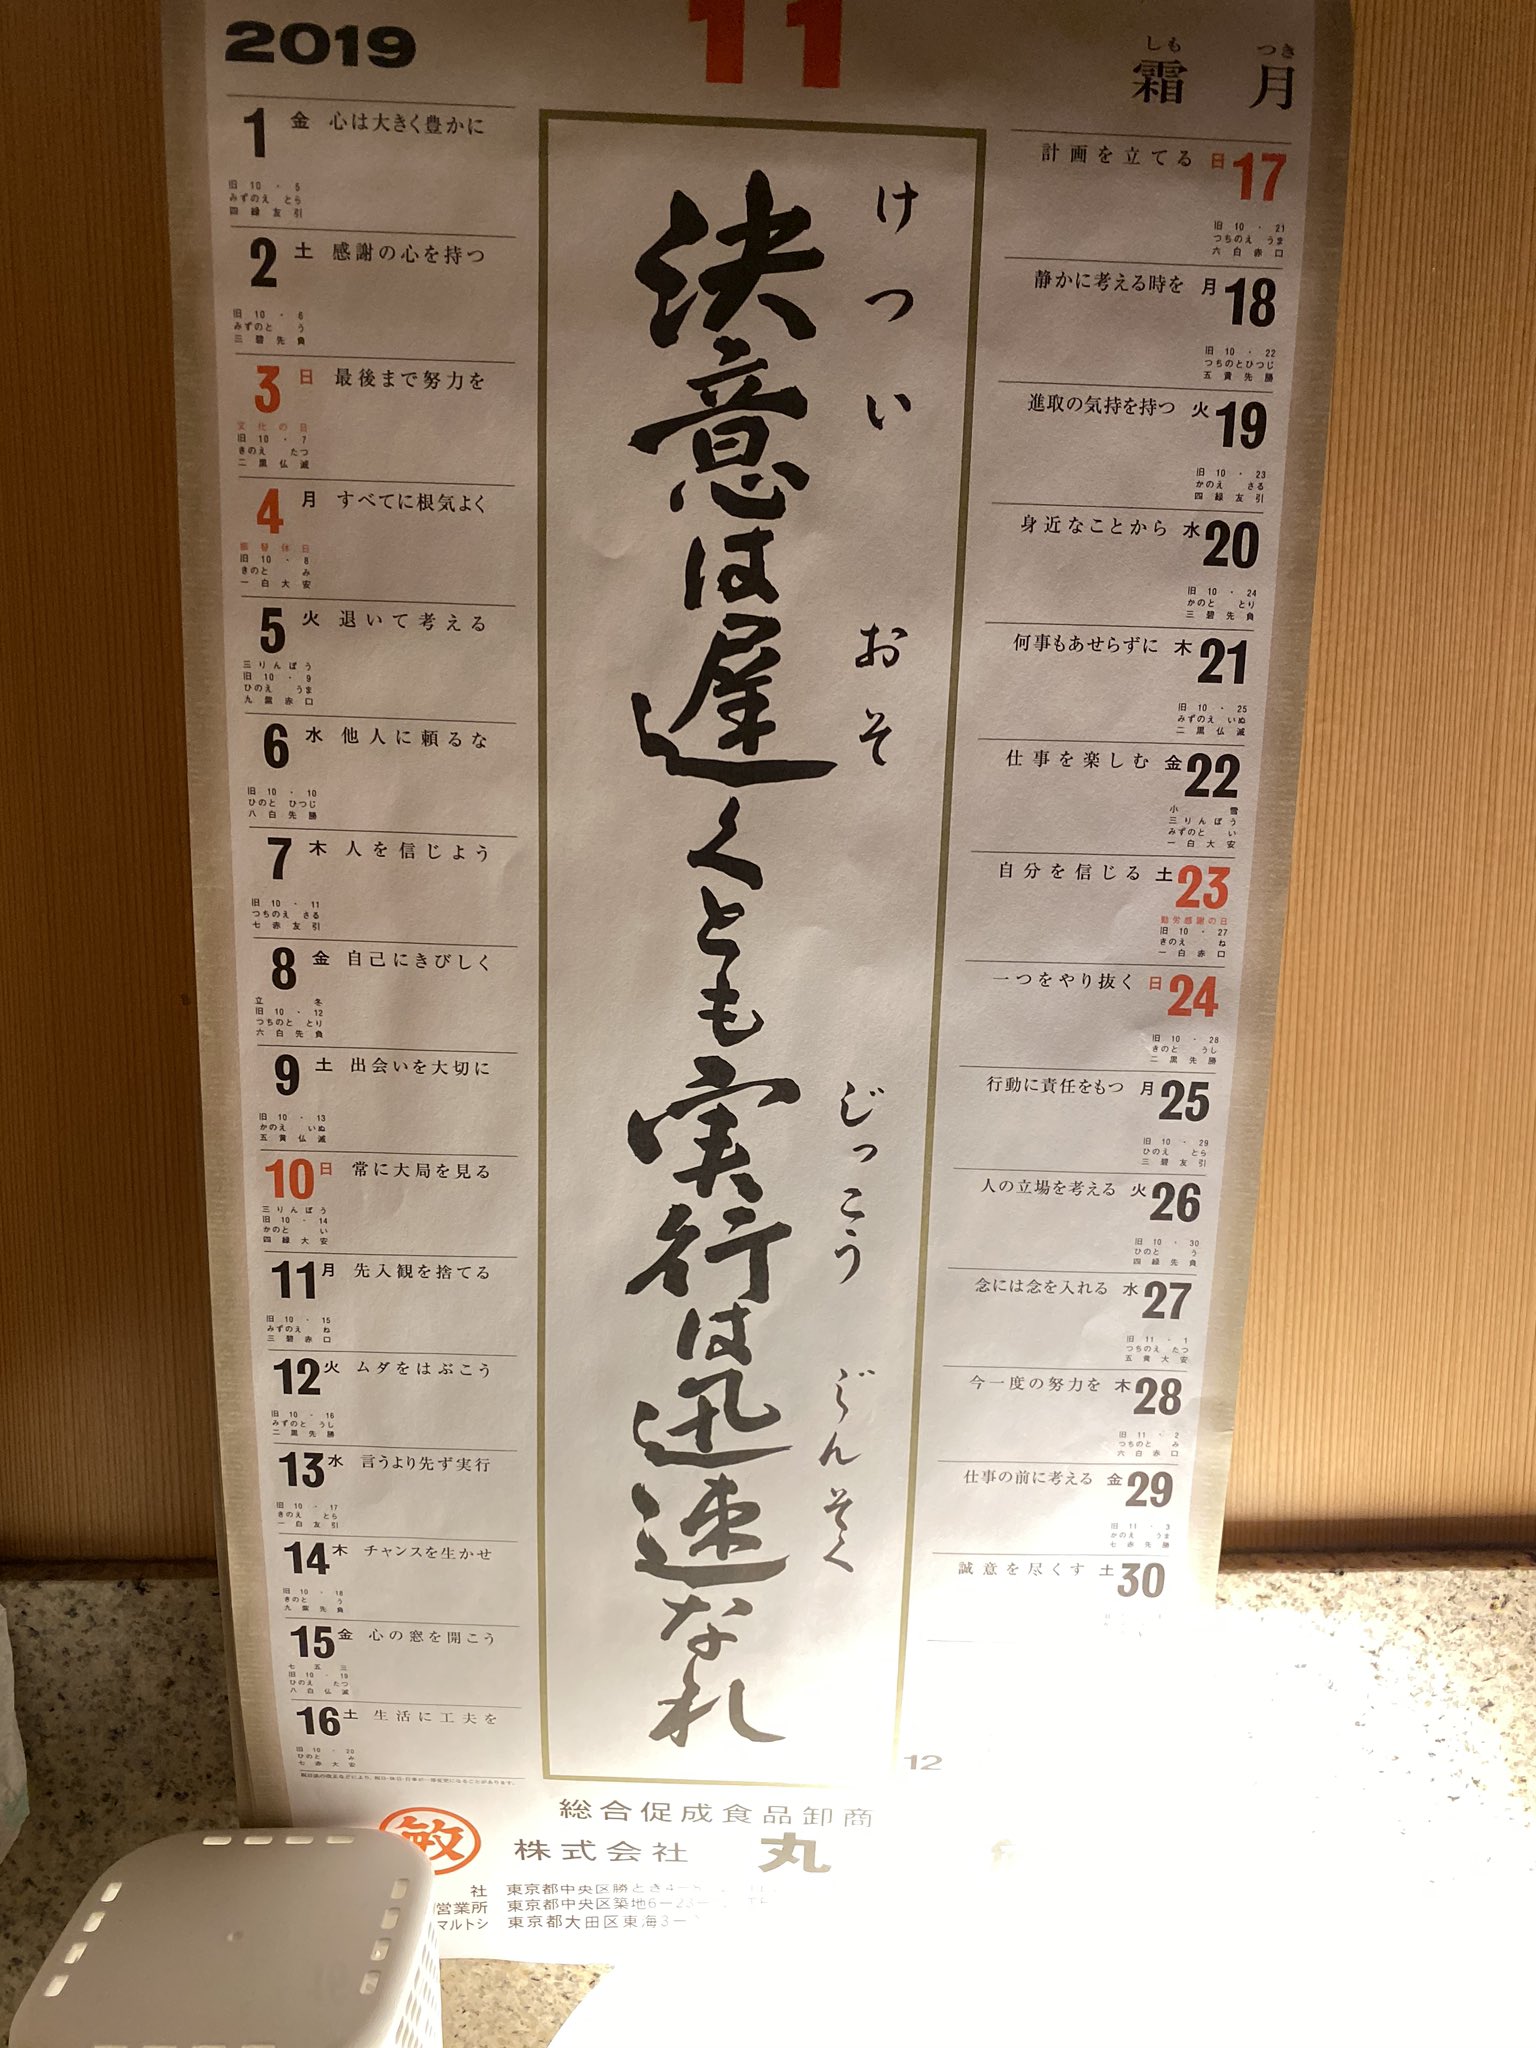 2019
11
霜月
しも つき
1 金 心は大きく豊かに
旧 10・5
みずのえ とら
四緑友引
2 土 感謝の心を持つ
旧 10・6
みずのと う
三碧先負
3 日 最後まで努力を
文化の日
旧 10・7
きのえ たつ
二黒仏滅
4 月 すべてに根気よく
振替休日
旧 10・8
きのと み
一白大安
5 火 退いて考える
三りんぼう
旧 10・9
ひのえ うま
九紫赤口
6 水 他人に頼るな
旧 10・10
ひのと ひつじ
八白先勝
7 木 人を信じよう
旧 10・11
つちのえ さる
七赤友引
8 金 自己にきびしく
立冬
旧 10・12
つちのと とり
六白先負
9 土 出会いを大切に
旧 10・13
かのえ いぬ
五黄仏滅
10 日 常に大局を見る
三りんぼう
旧 10・14
かのと い
四緑大安
11 月 先入観を捨てる
旧 10・15
みずのえ ね
三碧赤口
12 火 ムダをはぶこう
旧 10・16
みずのと うし
二黒先勝
13 水 言うより先ず実行
旧 10・17
きのえ とら
一白友引
14 木 チャンスを生かせ
旧 10・18
きのと う
九紫先負
15 金 心の窓を開こう
七五三
旧 10・19
ひのえ たつ
八白仏滅
16 土 生活に工夫を
旧 10・20
ひのと み
七赤大安
決意は遅くとも実行は迅速なれ
けつい おそ じっこう じんそく
計画を立てる 日 17
旧 10・21
つちのえ うま
六白赤口
静かに考える時を 月 18
旧 10・22
つちのとひつじ
五黄先勝
進取の気持を持つ 火 19
旧 10・23
かのえ さる
四緑友引
身近なことから 水 20
旧 10・24
かのと とり
三碧先負
何事もあせらずに 木 21
旧 10・25
みずのえ いぬ
二黒仏滅
仕事を楽しむ 金 22
小雪
三りんぼう
みずのと い
一白大安
自分を信じる 土 23
勤労感謝の日
旧 10・27
きのえ ね
一白赤口
一つをやり抜く 日 24
旧 10・28
きのと うし
二黒先勝
行動に責任をもつ 月 25
旧 10・29
ひのえ とら
三碧友引
人の立場を考える 火 26
旧 10・30
ひのと う
四緑先負
念には念を入れる 水 27
旧 11・1
つちのえ たつ
五黄大安
今一度の努力を 木 28
旧 11・2
つちのと み
六白赤口
仕事の前に考える 金 29
旧 11・3
かのえ うま
七赤先勝
誠意を尽くす 土 30
12
総合促成食品卸商
敏 株式会社 丸
社 東京都中央区勝どき4−
営業所 東京都中央区築地6−23−
マルトシ 東京都大田区東海3−